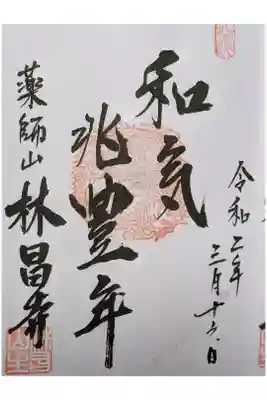 令和二年
三月十六日
和気
兆豊年
薬師山
林昌寺